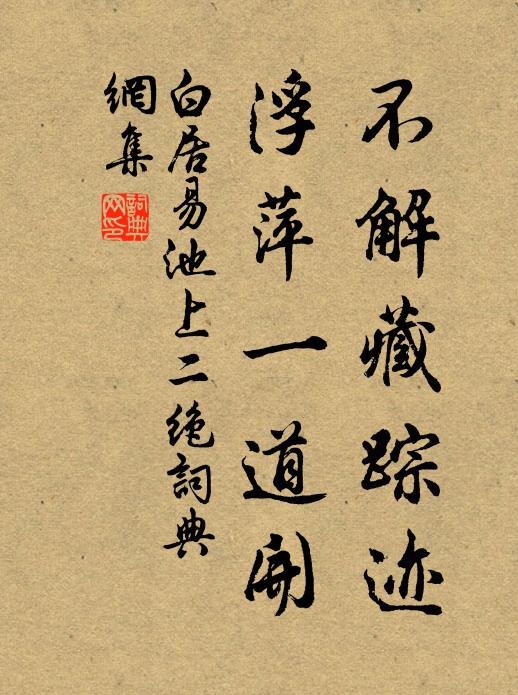 不解藏踪迹
浮萍一道開
白居易池上二绝詞典
網集
詞典网印